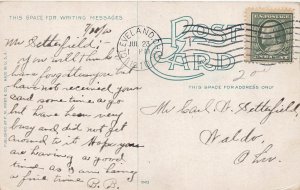 THIS SPACE FOR WRITING MESSAGES
POST CARD
CLEVELAND, OHIO
JUL 23
THIS SPACE FOR ADDRESS ONLY
Mr Settlefield;
you will think I
have forgotten you but
have not received your
card some time ago
but have been very
busy and did not get
around to it Hope you
are having as good
time as I am having
a fine time B.B.
Mr. Carl H. Settlefield,
Waldo,
Ohio.